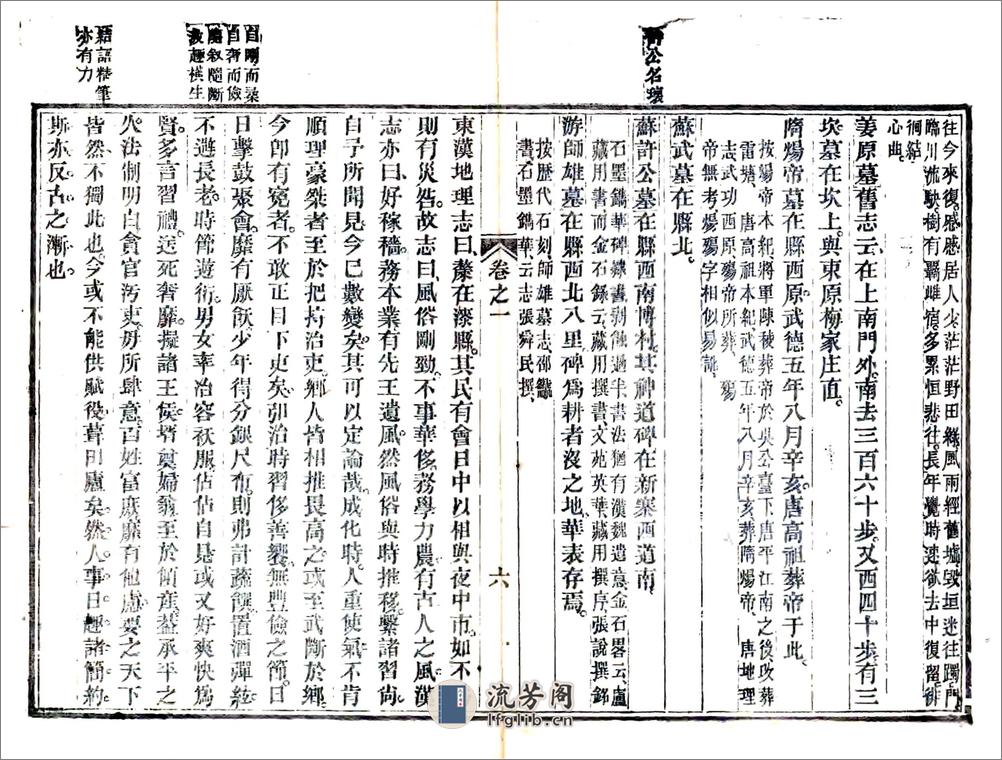 許公名瓌
往今來復感感居人少茫茫野田綠風雨經舊墟毀垣迷往躅門
臨川流駃樹有羈雌宿多累恒悲往長年覺時速欲去中復留徘
徊結
心曲
姜原墓舊志云在上南門外南去三百六十步又西四十步有三
坎墓在坎上與東原柳家庄直
隋煬帝墓在縣西原武德五年八月辛亥唐高祖葬帝于此
按煬帝本紀將軍陳稜葬帝於吳公臺下唐平江南之後改葬
雷塘 唐高祖本紀武德五年八月辛亥葬隋煬帝 唐地理
志武功西原殤帝所葬 殤
帝無考煬殤字相似易訛
蘇武墓在縣北
蘇許公墓在縣西南博村其神道碑在新寨西道南
石墨鐫華碑隸書剝蝕過半書法猶有漢魏遺意金石畧云盧
藏用書而金石錄云藏用撰書文苑英華藏用撰序張說撰銘
游師雄墓在縣西北八里碑爲耕者沒之地華表存焉
按歷代石刻師雄墓志邵䶵
書石墨鐫華云志張舜民撰
卷之一 六
自剛而柔
自奢而儉
層敘隨斷
妙趣橫生
結語精筆
亦有力
東漢地理志曰斄在漆縣其民有會日中以相與夜中市如不
則有災咎故志曰風俗剛勁不事華侈務學力農有古人之風漢
志亦曰好稼穡務本業有先王遺風然風俗與時推移繫諸習尚
自予所聞見今已數變矣其可以定論哉成化時人重使氣不肯
順理豪桀者至於把持治吏鄉人皆相推畏高之或至武斷於鄉
今卽有冤者不敢正目下吏矣弘治時習侈善饗無豐儉之節日
日擊鼓聚會靡有厭飫少年得分銀尺布則弗計蔬饌置酒彈絃
不避長老時節遊衍男女率冶容袨服佔佔自足或又好爽快爲
賢多言習禮送死奢靡擬諸王侯壻奠婦翁至於傾產蓋承平之
久法制明白貪官汚吏毋所肆意百姓富庶靡有他慮要之天下
皆然不獨此也今或不能供賦役葺田廬矣然人事日趣諸簡約
斯亦反古之漸也
流芳阁
lfglib.cn